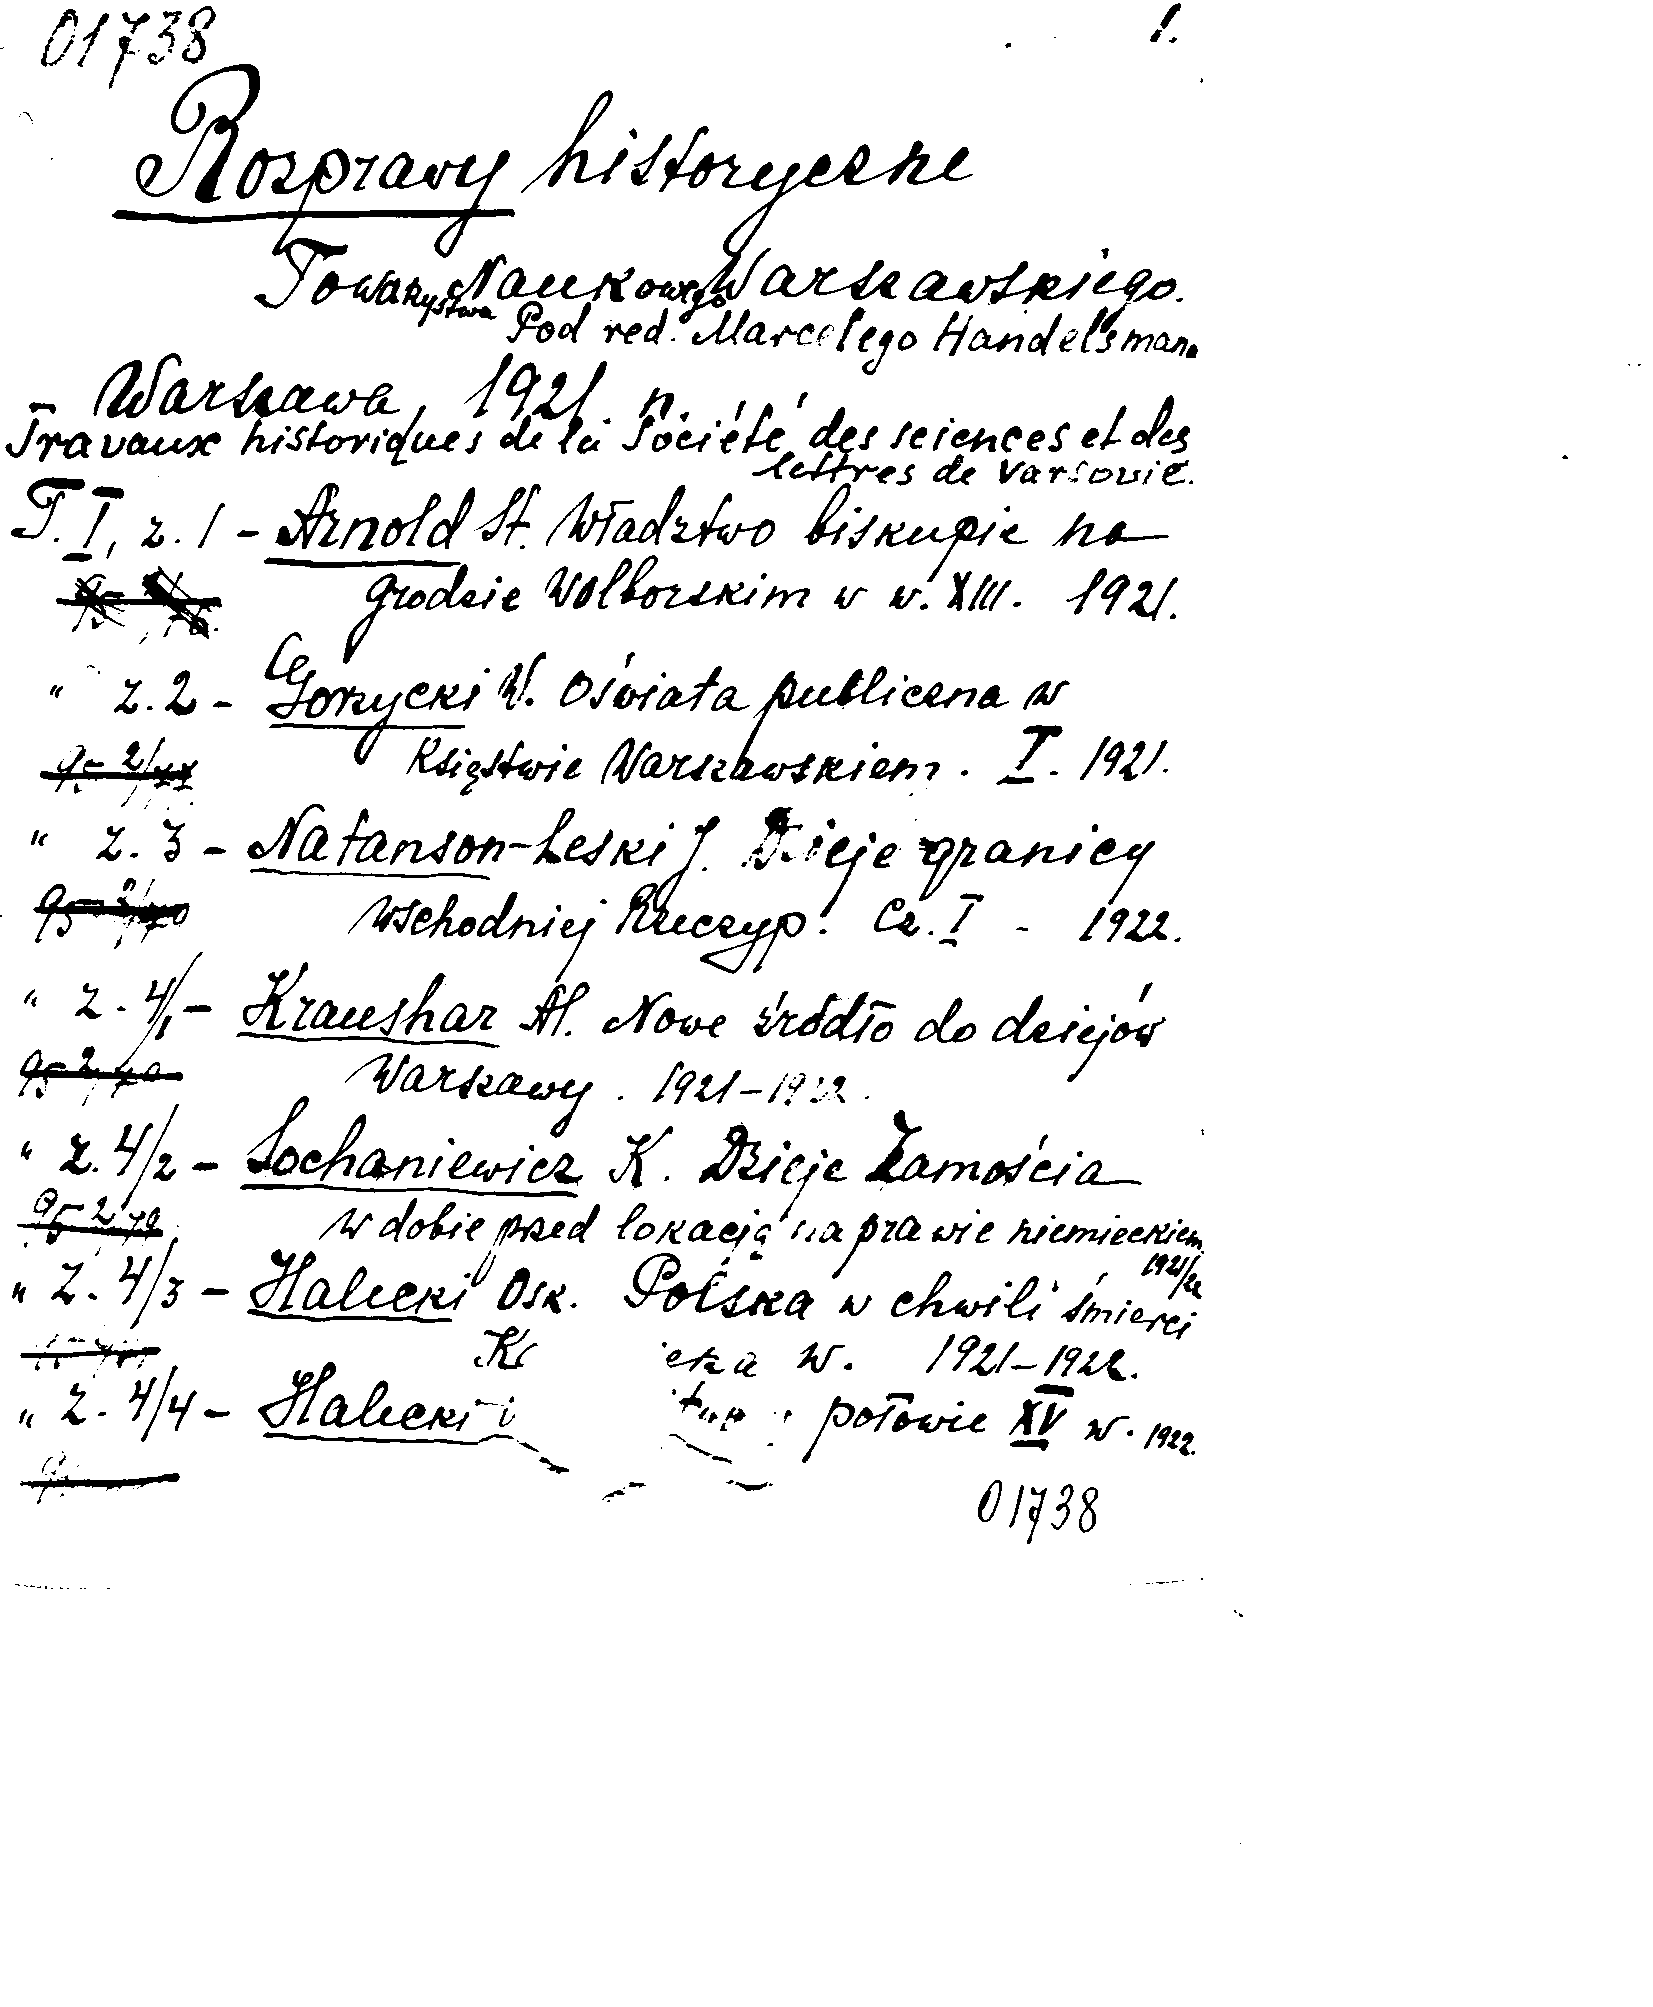 01738 1.
Rozprawy historyczne
Towarzystwa Naukowego Warszawskiego.
Pod red. Marcelego Handelsmana
Warszawa, 1921. n.
Travaux historiques de la Société des sciences et des
lettres de Varsovie.
T. I, z. 1 - Arnold St. Władztwo biskupie na
grodzie Wolborskim w w. XIII. 1921.
" z. 2 - Gorzycki W. Oświata publiczna w
Księstwie Warszawskiem. I. 1921.
" z. 3 - Natanson-Leski J. Dzieje granicy
wschodniej Rzeczyp. Cz. I - 1922.
" z. 4/1 - Kraushar Al. Nowe źródło do dziejów
Warszawy. 1921-1922.
" z. 4/2 - Sochaniewicz K. Dzieje Zamościa
w dobie przed lokacją na prawie niemieckiem
1921/22
" z. 4/3 - Halecki Osk. Polska w chwili śmierci
W. 1921-1922.
" z. 4/4 - Halecki połowie XV w. 1922.
01738